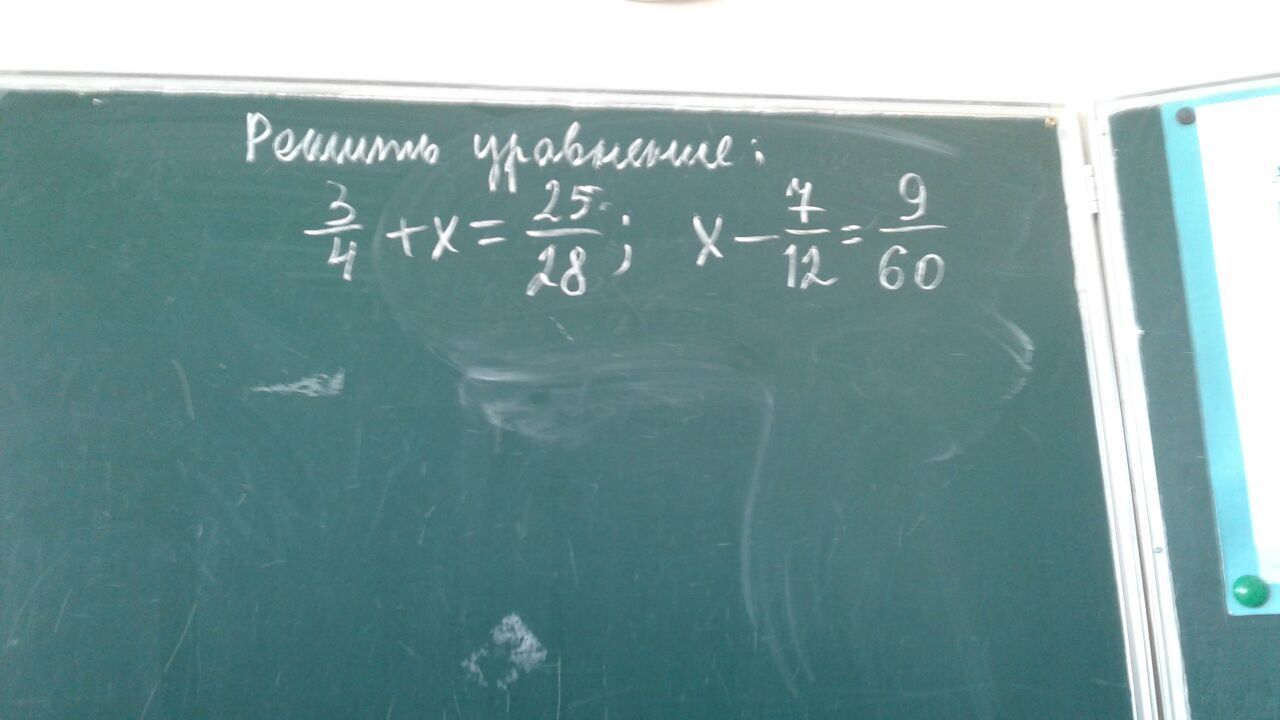 Решить уравнение:
3/4 + x = 25/28; x - 7/12 = 9/60